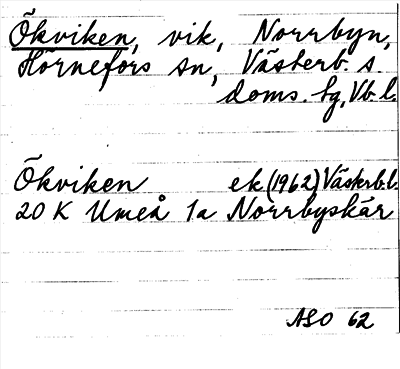 Ökviken, vik, Norrbyn,
Hörnefors sn, Västerb. s.
doms. sg, Vb. l.
Ökviken ek (1962) Västerb. l.
20 K Umeå 1a Norrbyskär
ASO 62